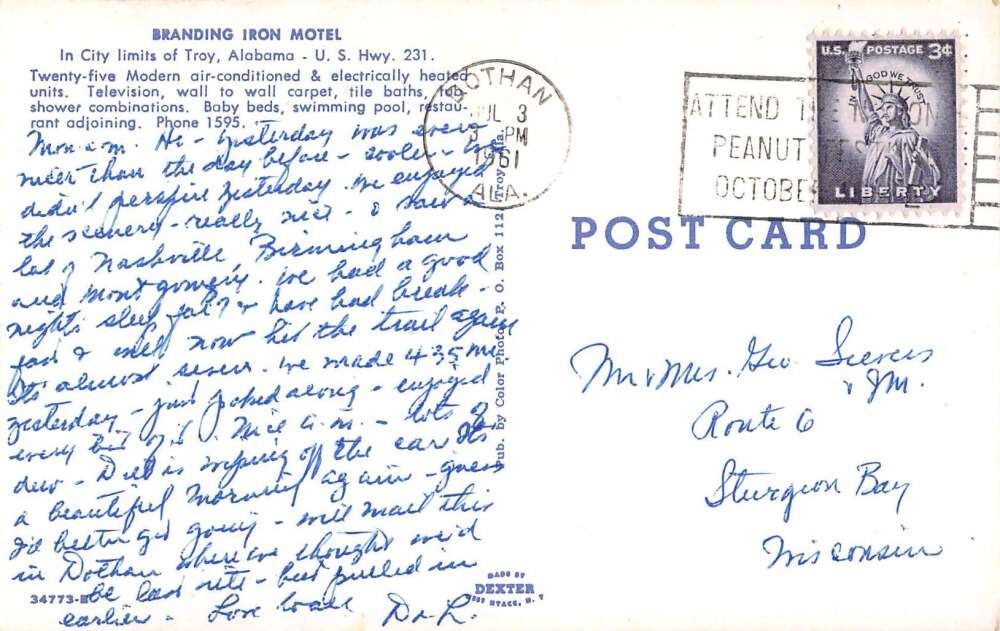 BRANDING IRON MOTEL
In City limits of Troy, Alabama - U. S. Hwy. 231.
Twenty-five Modern air-conditioned & electrically heated
units. Television, wall to wall carpet, tile baths,
shower combinations. Baby beds, swimming pool, restau-
rant adjoining. Phone 1595.
Mon a.m. Hi - yesterday was even
nicer than the day before - cooler -
didn't perspire yesterday. We enjoyed
the scenery - really nice - & saw a
lot of Nashville, Birmingham
and Montgomery. We had a good
night's sleep & have had break-
fast & will now hit the trail again
Its almost seven. We made 435 mi
yesterday - just poked along - enjoyed
every bit of it. Nice a.m. - lots of
dew - Dad is wiping off the car. Its
a beautiful morning again - guess
I'd better get going - will mail this
in Dothan where we thought we'd
be last nite - but pulled in
earlier. Love to all
D & L.
34773-B
Pub. by Color Photo, P. O. Box 112, Troy, Ala.
MADE BY
DEXTER
WEST NYACK, N. Y.
DOTHAN
JUL 3
PM
1961
ALA.
ATTEND THE NATION
PEANUT
OCTOBE
U.S. POSTAGE 3¢
IN GOD WE TRUST
LIBERTY
POST CARD
Mr & Mrs. Geo Sievers
& Jm.
Route 6
Sturgeon Bay
Wisconsin